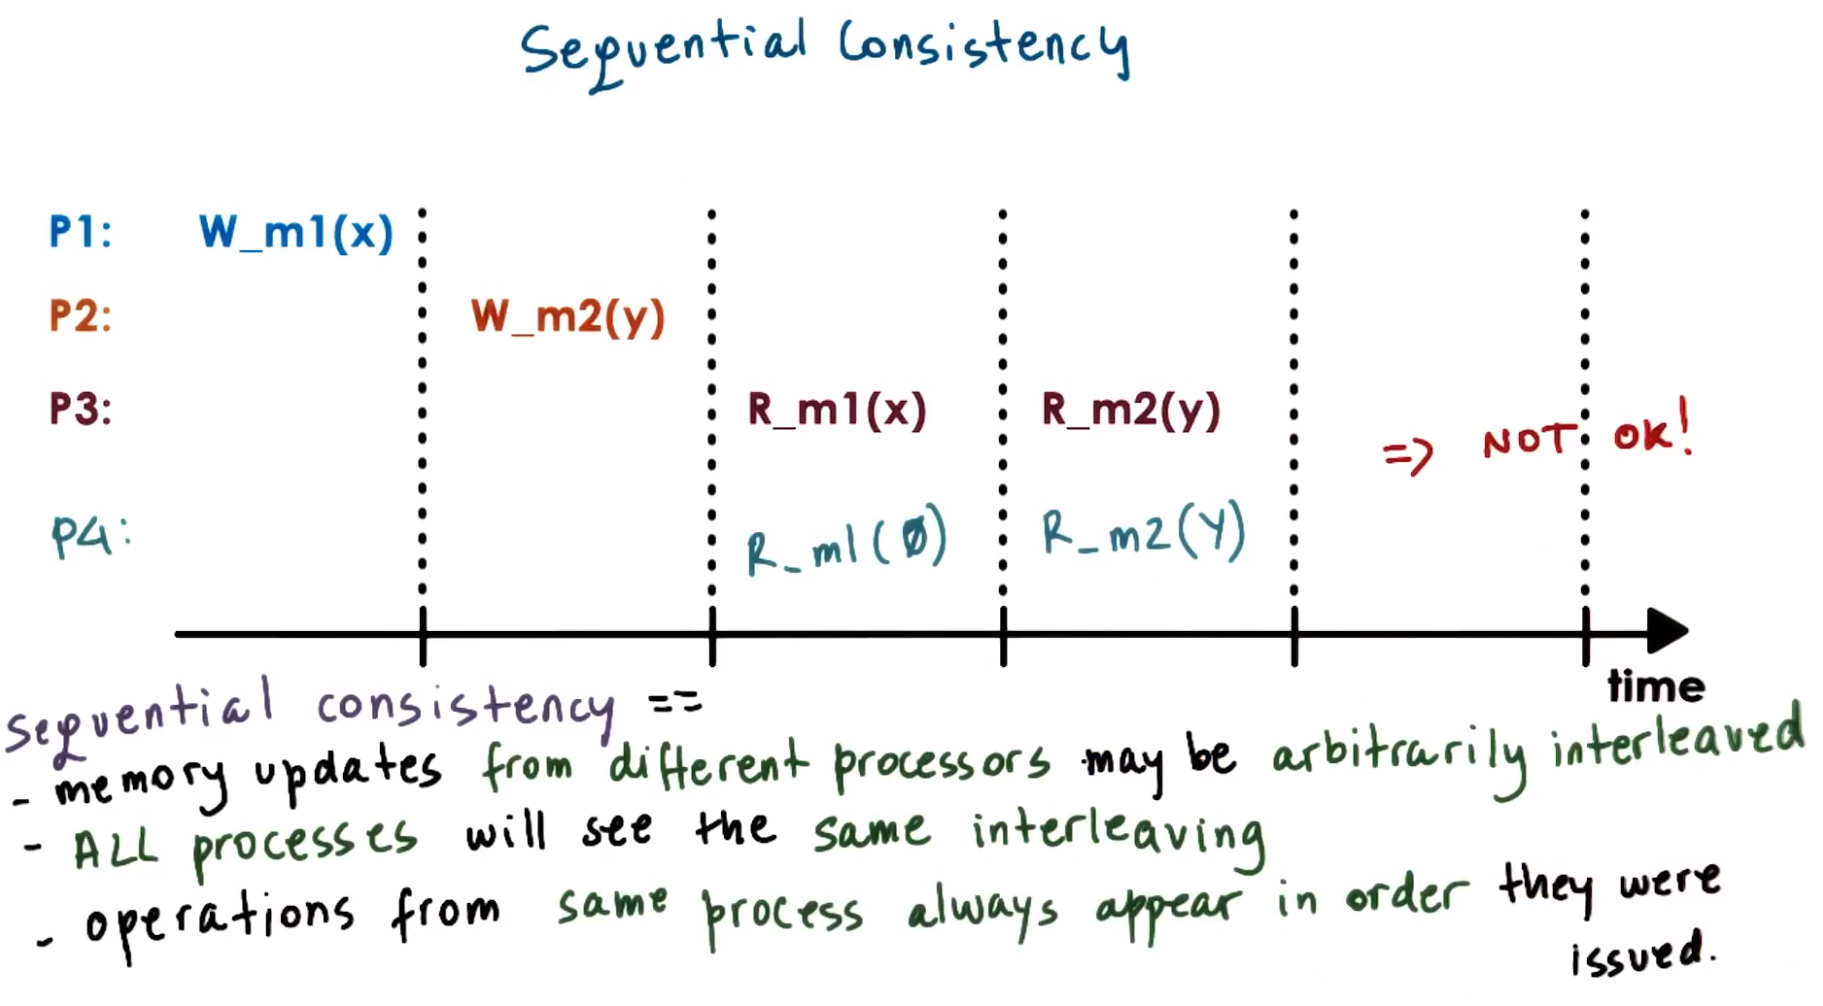 Sequential Consistency
P1: W_m1(x)
P2: W_m2(y)
P3: R_m1(x) R_m2(y)
=> NOT OK!
P4: R_m1(0) R_m2(Y)
time
sequential consistency ==
- memory updates from different processors may be arbitrarily interleaved
- ALL processes will see the same interleaving
- operations from same process always appear in order they were
issued.